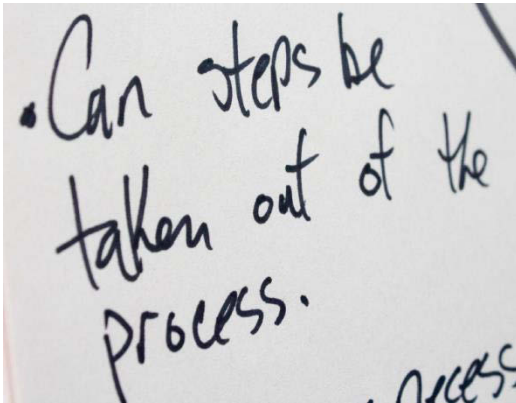 • Can steps be
taken out of the
process.